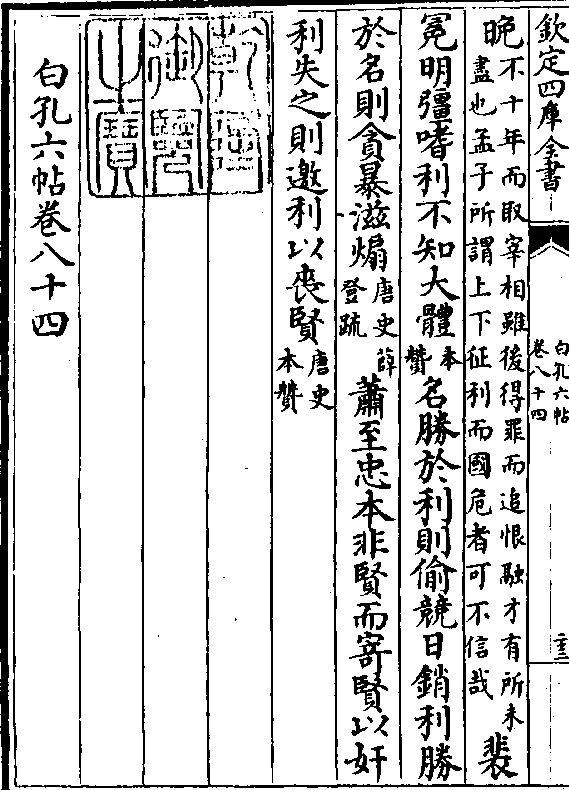 欽定四庫全書
白孔六帖
卷八十四
二十三
晚不十年而取宰相雖後得罪而追恨融才有所未
盡也孟子所謂上下征利而國危者可不信哉裴
冕明彊嗜利不知大體本贊名勝於利則偷競日銷利勝
於名則貪暴滋煽唐史薛登疏蕭至忠本非賢而寄賢以奸
利失之則邀利以喪賢唐史本贊
乾隆御覽之寶
白孔六帖卷八十四